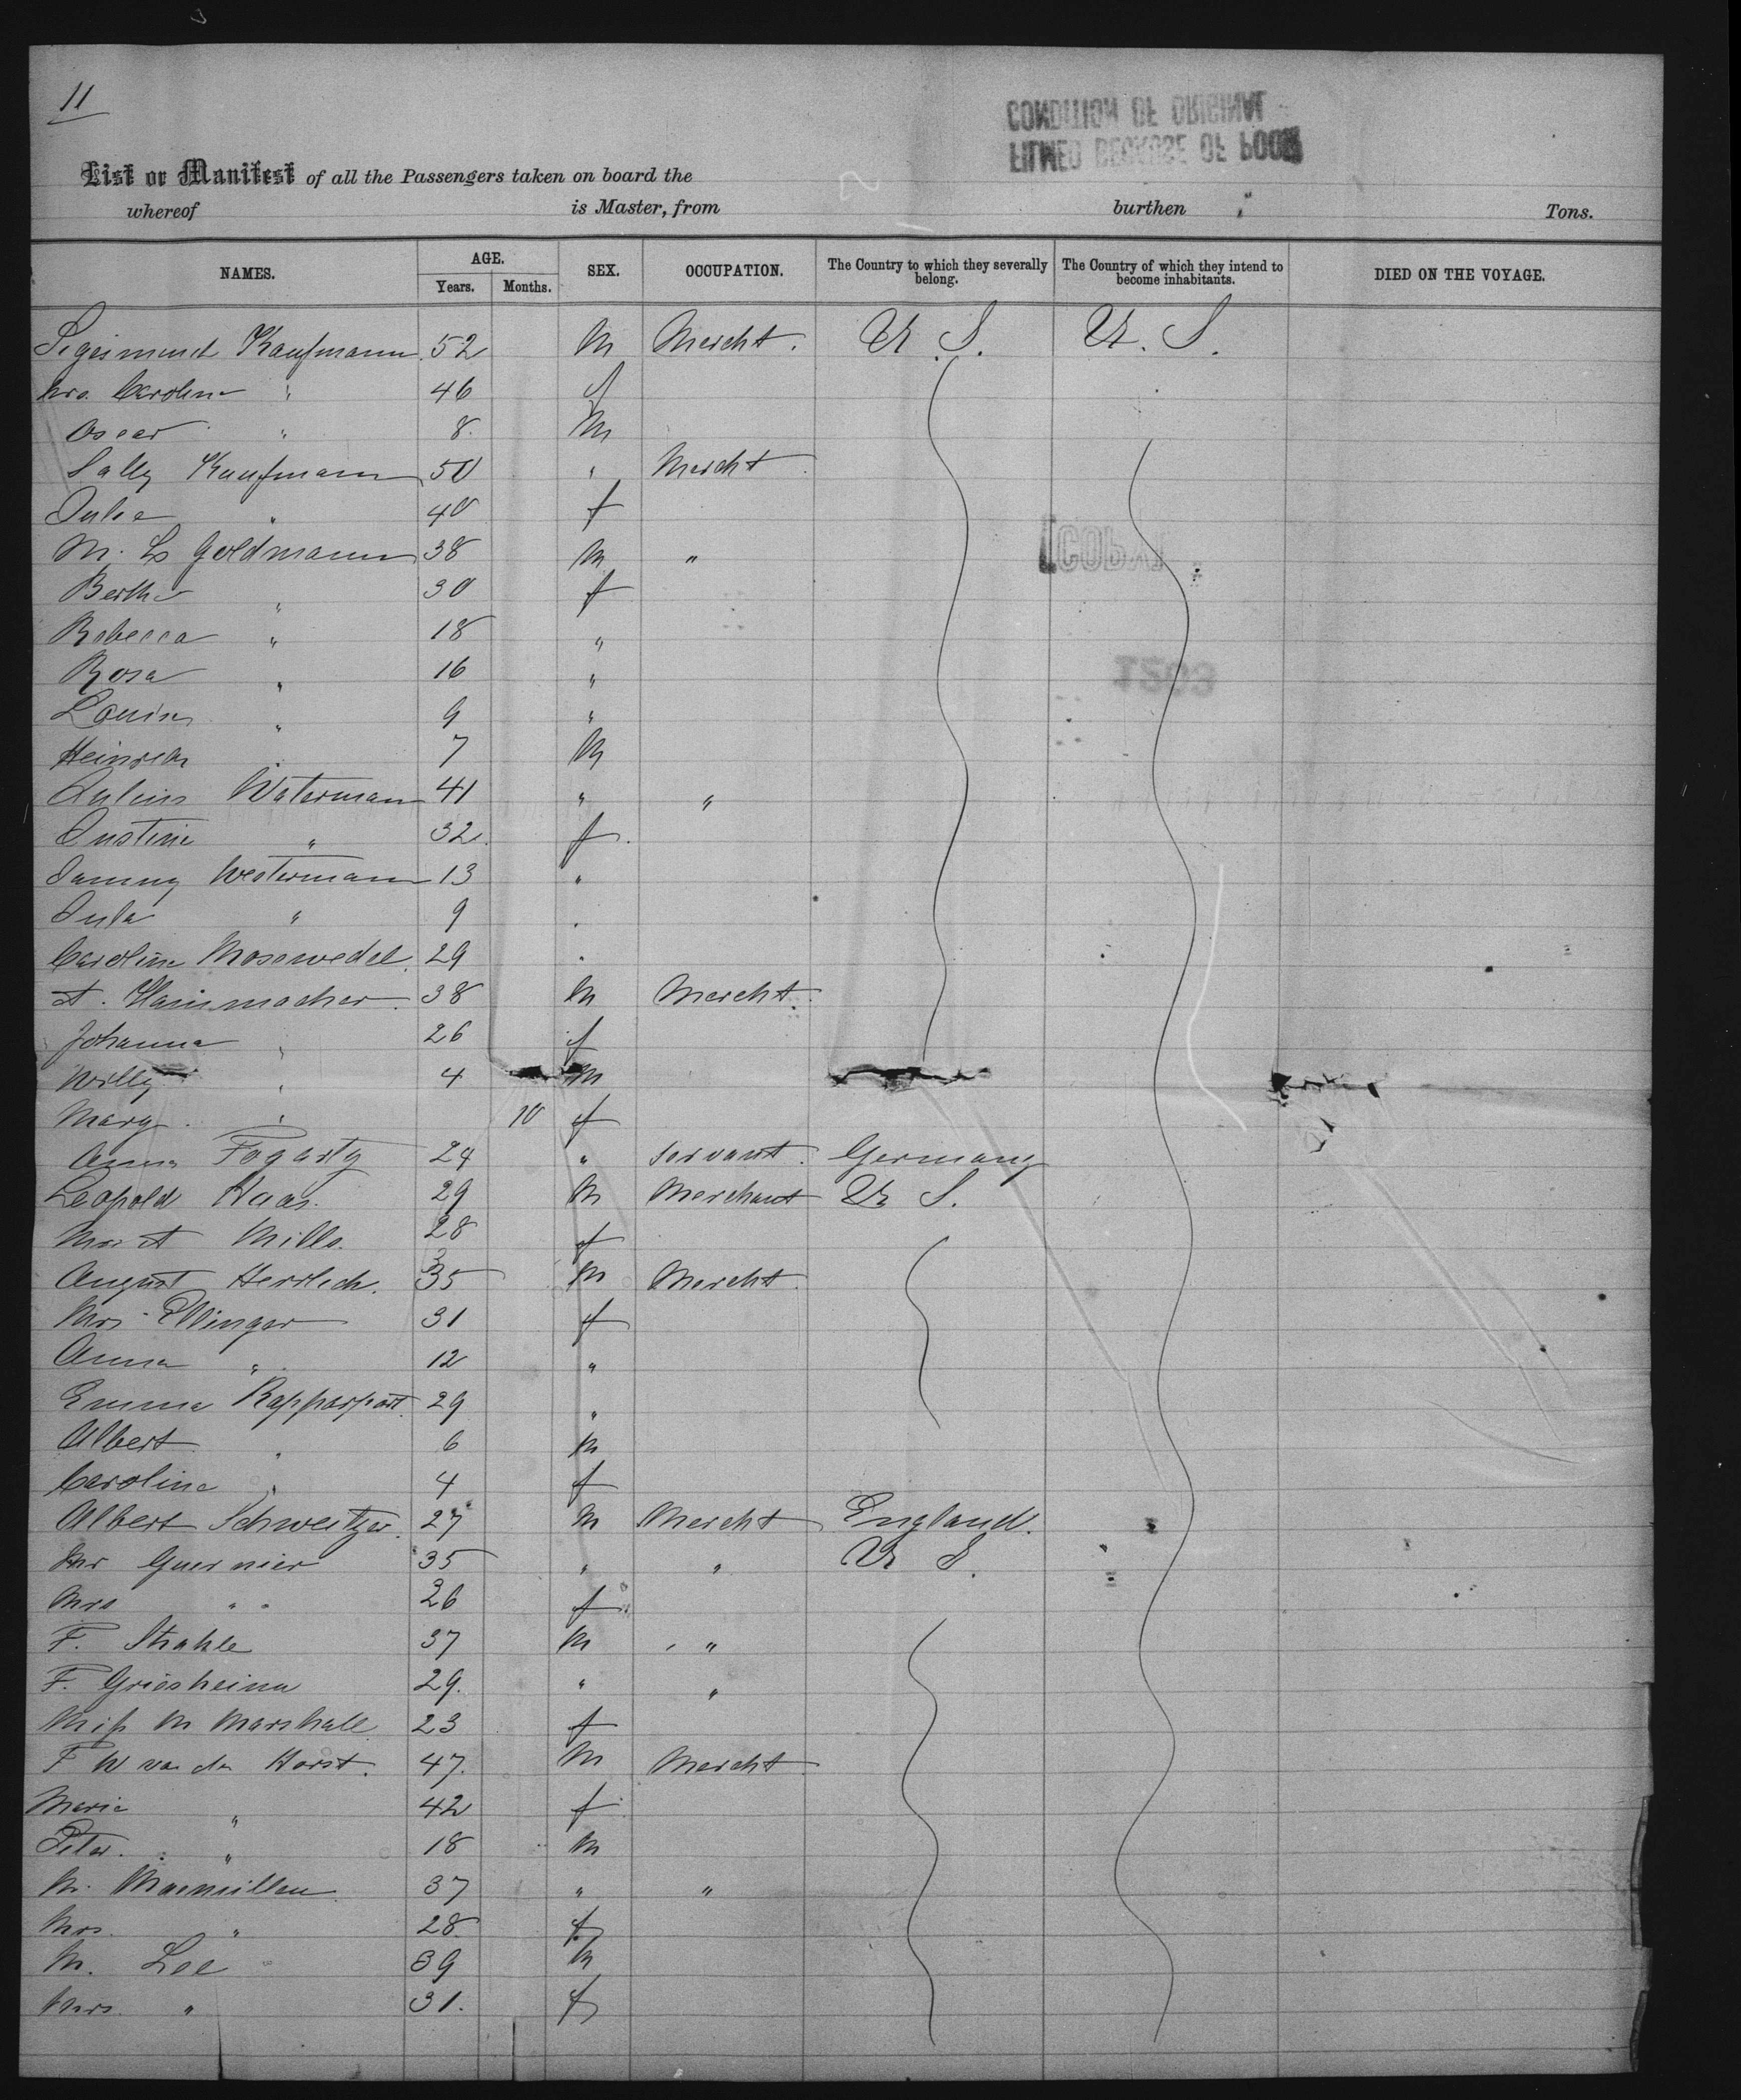 11
CONDITION OF ORIGINAL
FILMED BECAUSE OF POOR
List or Manifest of all the Passengers taken on board the
whereof is Master, from burthen Tons.
NAMES. AGE. Years. Months. SEX. OCCUPATION. The Country to which they severally belong. The Country of which they intend to become inhabitants. DIED ON THE VOYAGE.
Sigismund Kaufmann 52 M Mercht. U. S. U. S.
Mrs. Caroline " 46 f
Oscar " 8. M
Sally Kaufmann 50 " Mercht
Julie " 40 f
M. Ls Goldmann 38 M "
Bertha " 30 f
Rebecca " 18 "
Rosa " 16 "
Louise " 9 "
Heinrich " 7 M
Julius Waterman 41 " "
Justine " 32 f.
Westermann 13 "
Jula " 9 "
Caroline Mosewedel 29 "
A. 38 M Mercht.
Johanna " 26 f
Willy " 4 M
Mary " 10 f
Anna Fogarty 24 " Servant. Germany
Leopold Haas. 29 M Merchant U. S.
Mrs A Mills. 28 f
August Herrlich. 35 M Mercht.
Mrs Ellinger 31 f
Anna " 12 "
Emma Rapparport 29 "
Albert " 6 M
Caroline " 4 f
Albert Schweitzer. 27 M Mercht England.
Mr Guernier 35 " " U S.
Mrs " " 26 f
F. Strahle 37 M "
F. Griesheim 29. " "
Miss M Marshall 23 f
F W van der Horst. 47. M Mercht
Marie " 42 f
Peter. " 18 M
M. Macmillan 37 " "
Mrs. " 28 f
M. Lee 39 M
Mrs. " 31. f
[COPY]
1593